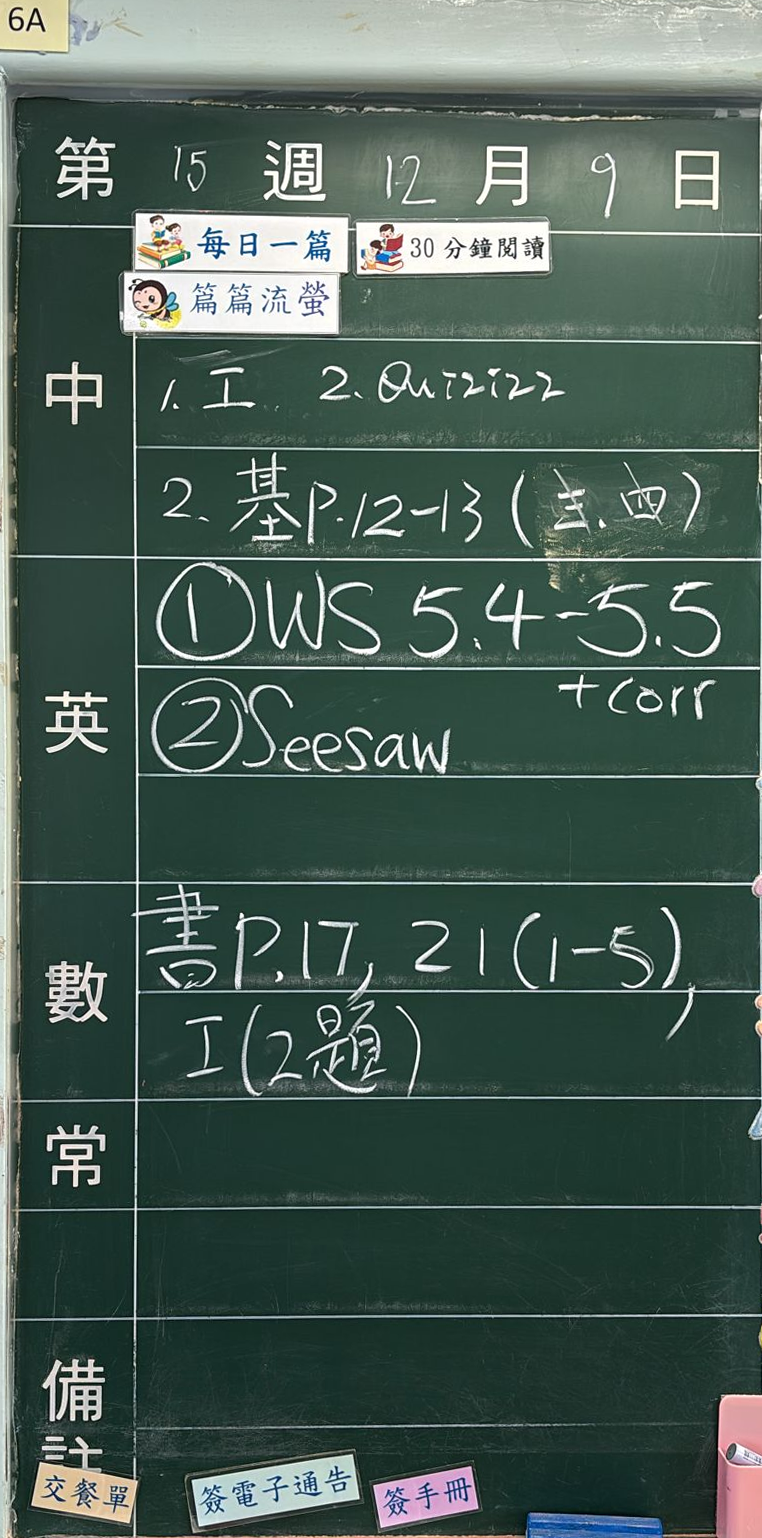 6A
第 15 週 12 月 9 日
每日一篇 30分鐘閱讀
篇篇流螢
中
1. 工 2. Quizizz
2. 基P.12-13(三、四)
英
①WS 5.4-5.5
+corr
②Seesaw
數
書P.17, 21(1-5),
工(2題)
常
備註
交餐單 簽電子通告 簽手冊